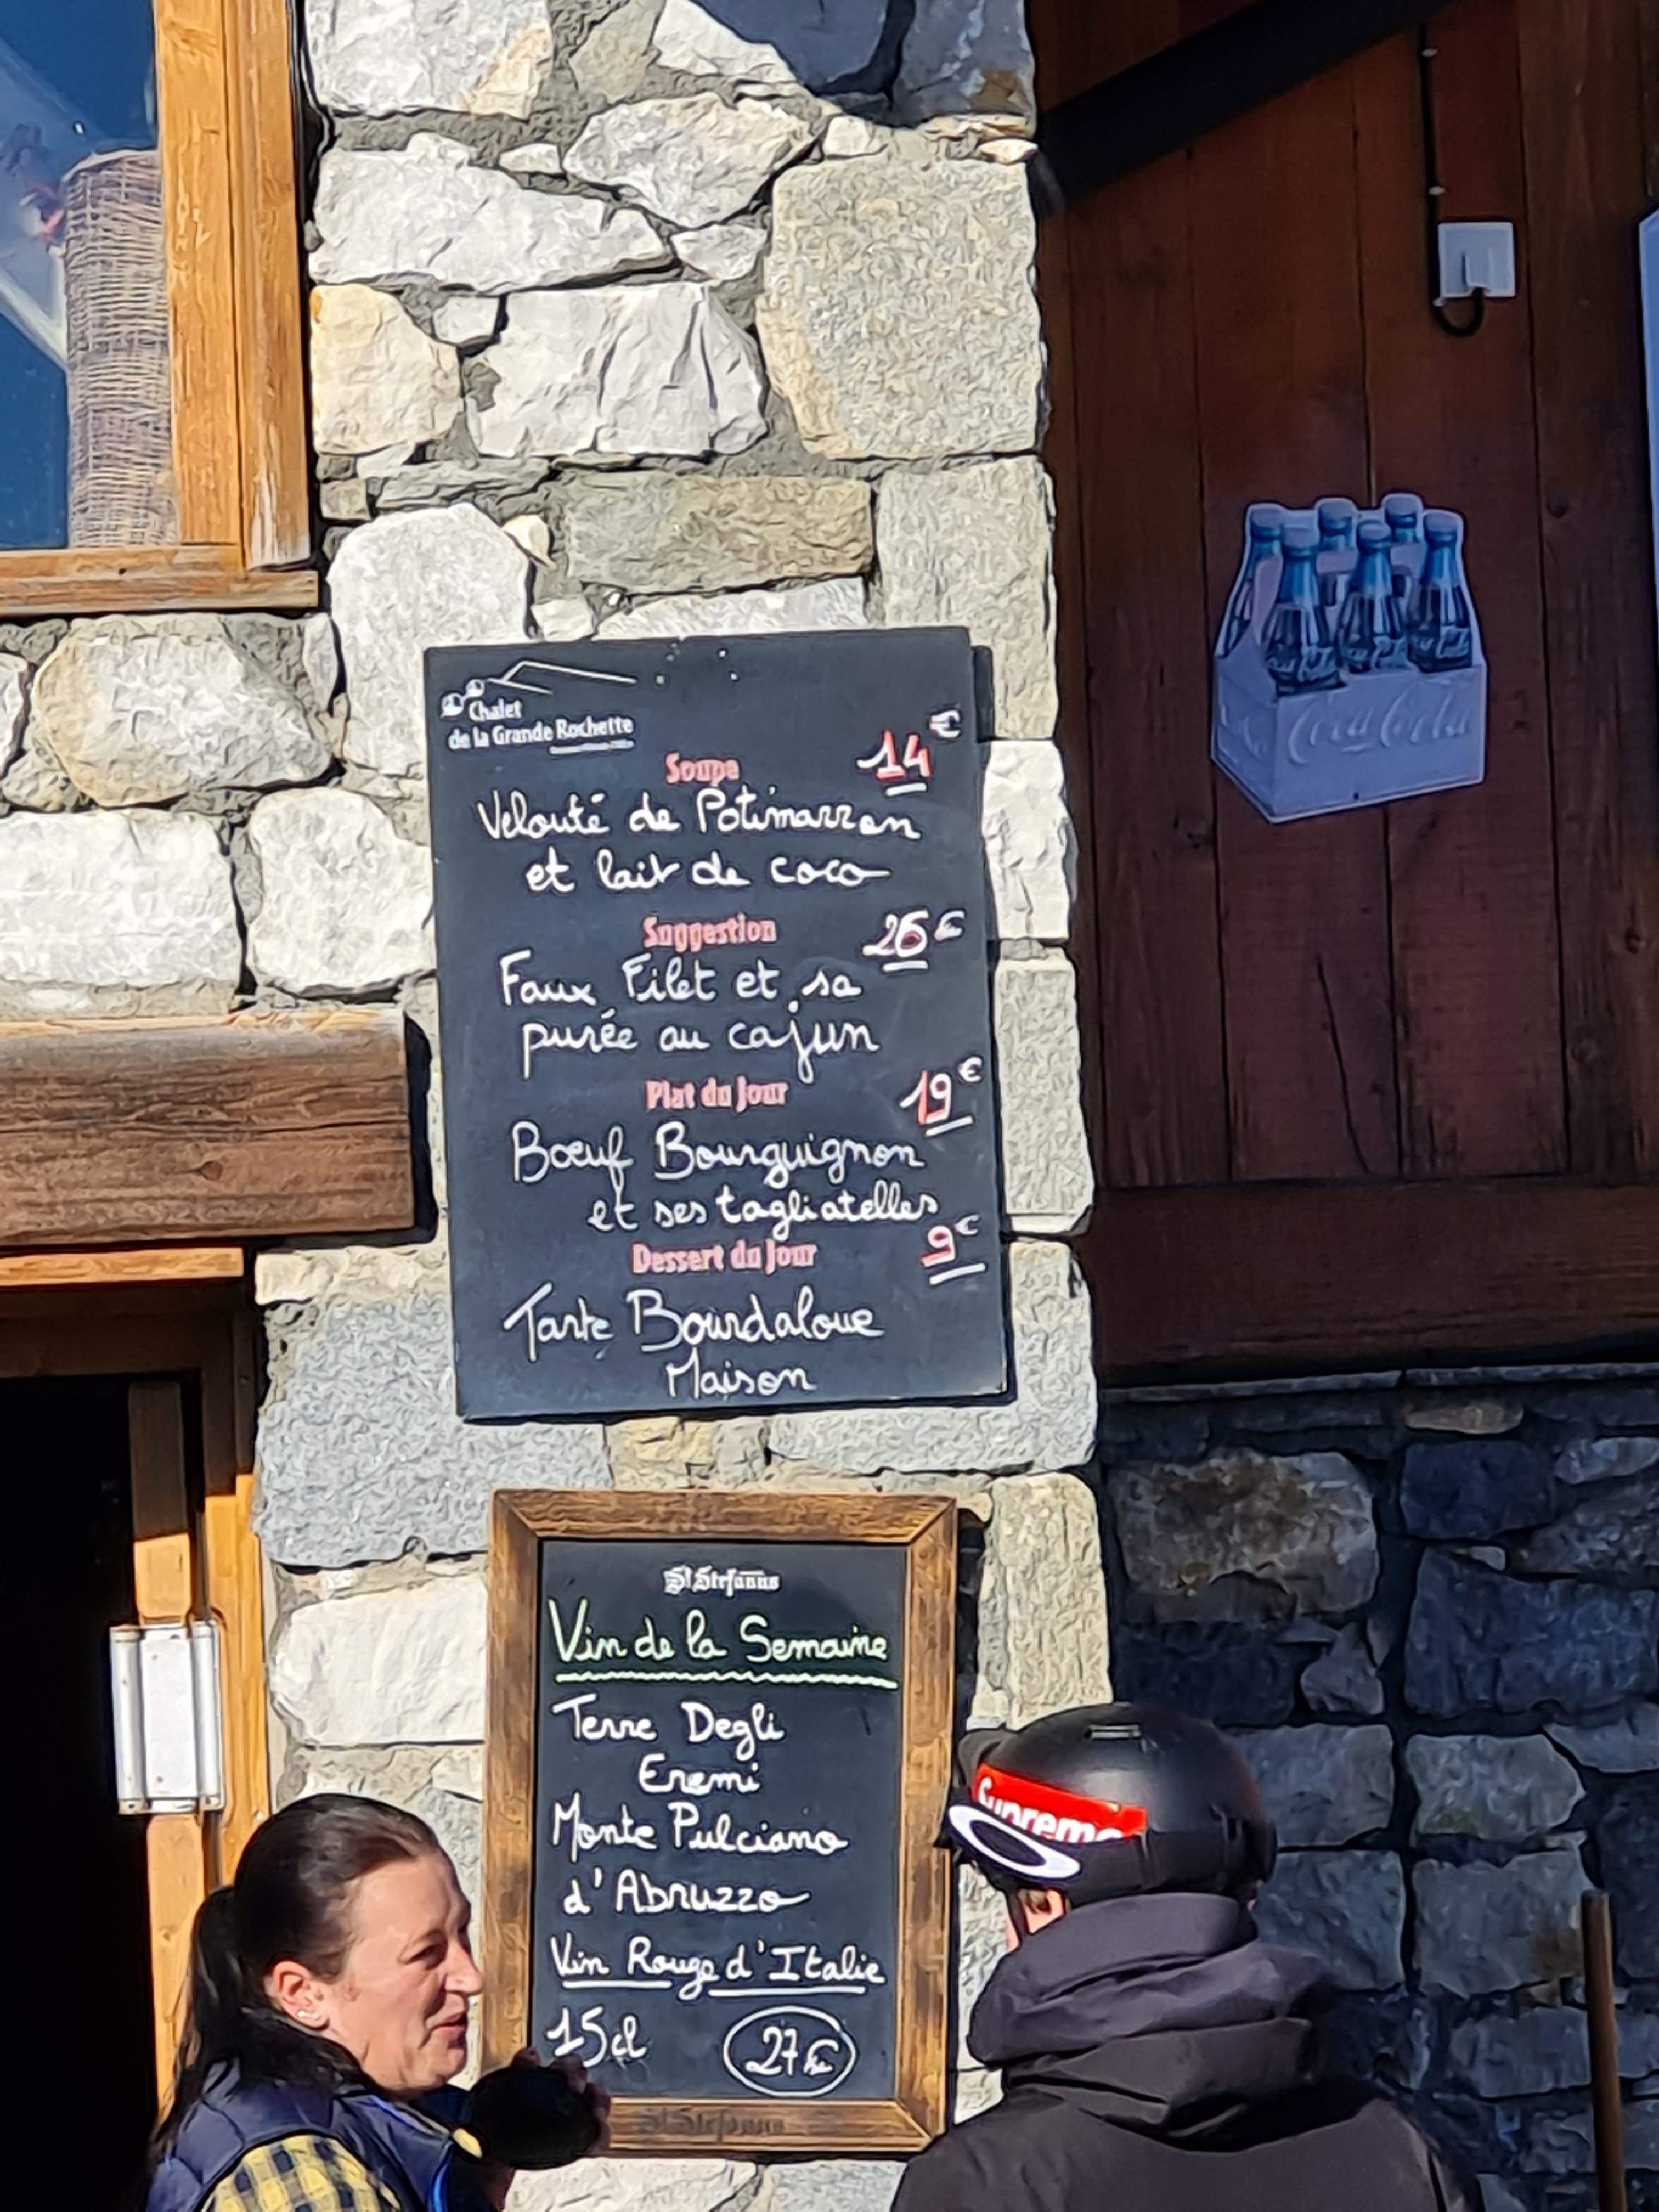 Chalet
de la Grande Rochette
Soupe 14€
Velouté de Potimarron
et lait de coco
Suggestion 26€
Faux Filet et sa
purée au cajun
Plat du Jour 19€
Bœuf Bourguignon
et ses tagliatelles
Dessert du Jour 9€
Tarte Bourdaloue
Maison
St Stefanus
Vin de la Semaine
Terre Degli
Eremi
Monte Pulciano
d'Abruzzo
Vin Rouge d'Italie
15cl 27€
St Stefanus
Coca-Cola
Supreme